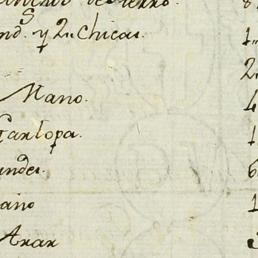 de Yerro. 8
nd.s y 2 Chicas. 1
2
Mano. 4
Garlopa. 1
andes. 6
ano 1
Arar 3